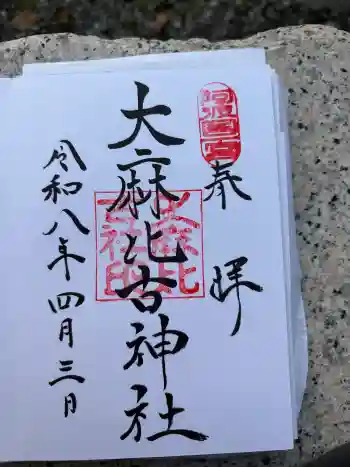 阿波国一宮
奉拝
大麻比古神社
大麻比古神社印
令和八年四月三日